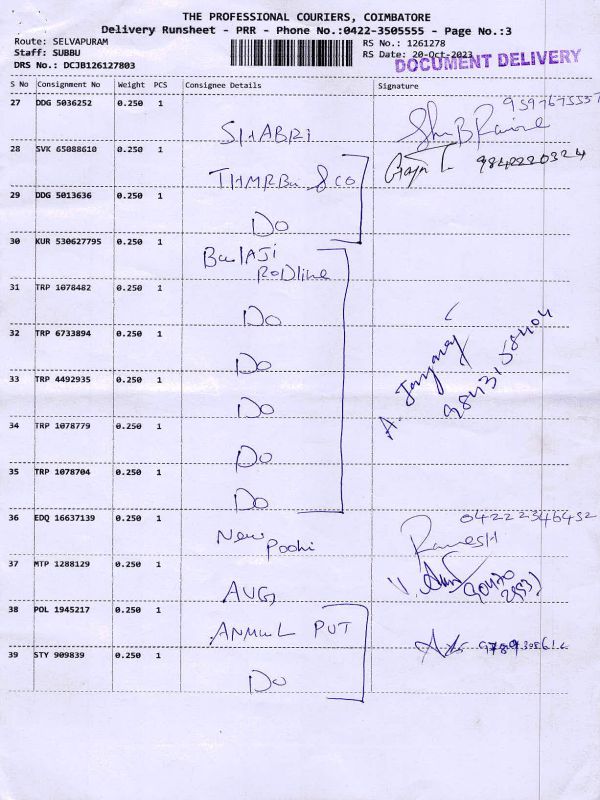 THE PROFESSIONAL COURIERS, COIMBATORE
Delivery Runsheet - PRR - Phone No.:0422-3505555 - Page No.:3
Route: SELVAPURAM
RS No.: 1261278
Staff: SUBBU
RS Date: 20-Oct-2023
DRS No.: DCJB126127803
DOCUMENT DELIVERY
S No Consignment No Weight PCS Consignee Details Signature
27 DDG 5036252 0.250 1
SHABRI
28 SVK 65088610 0.250 1
9842220324
& CO
29 DDG 5013636 0.250 1
Do
30 KUR 530627795 0.250 1
BalAJi
RODline
31 TRP 1078482 0.250 1
Do
32 TRP 6733894 0.250 1
Do
33 TRP 4492935 0.250 1
Do
34 TRP 1078779 0.250 1
Do
35 TRP 1078704 0.250 1
Do
36 EDQ 16637139 0.250 1
04222346452
New
Poohi
RamESH
37 MTP 1288129 0.250 1
AUG
38 POL 1945217 0.250 1
ANMUL PUT
39 STY 909839 0.250 1
Do